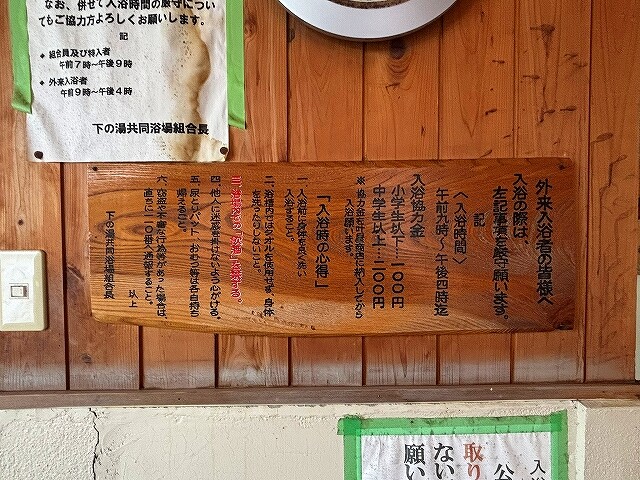 なお、併せて入浴時間の厳守につい
てもご協力方よろしくお願いします。
記
* 組合員及び特入者
午前7時〜午後9時
* 外来入浴者
午前9時〜午後4時
下の湯共同浴場組合長
外来入浴者の皆様へ
入浴の際は、
左記事項を厳守願います。
記
〈入浴時間〉
午前九時〜午後四時迄
入浴協力金
小学生以下・一〇〇円
中学生以上・二〇〇円
入浴願います。
「入浴療の心得」
一、入浴前に身体を良く洗い
入浴すること。
二、浴槽内ではタオルを使用せず、身体
を洗ったりしないこと。
四、他人に迷惑を掛けないよう心がける。
五、尿とりパット・おむつ等は各自持ち
帰えること。
六、窃盗や不審な行為等があった場合は、
直ちに一一〇番へ通報すること。
以上
下の湯共同浴場組合長
入浴
公
取り
ない
願い